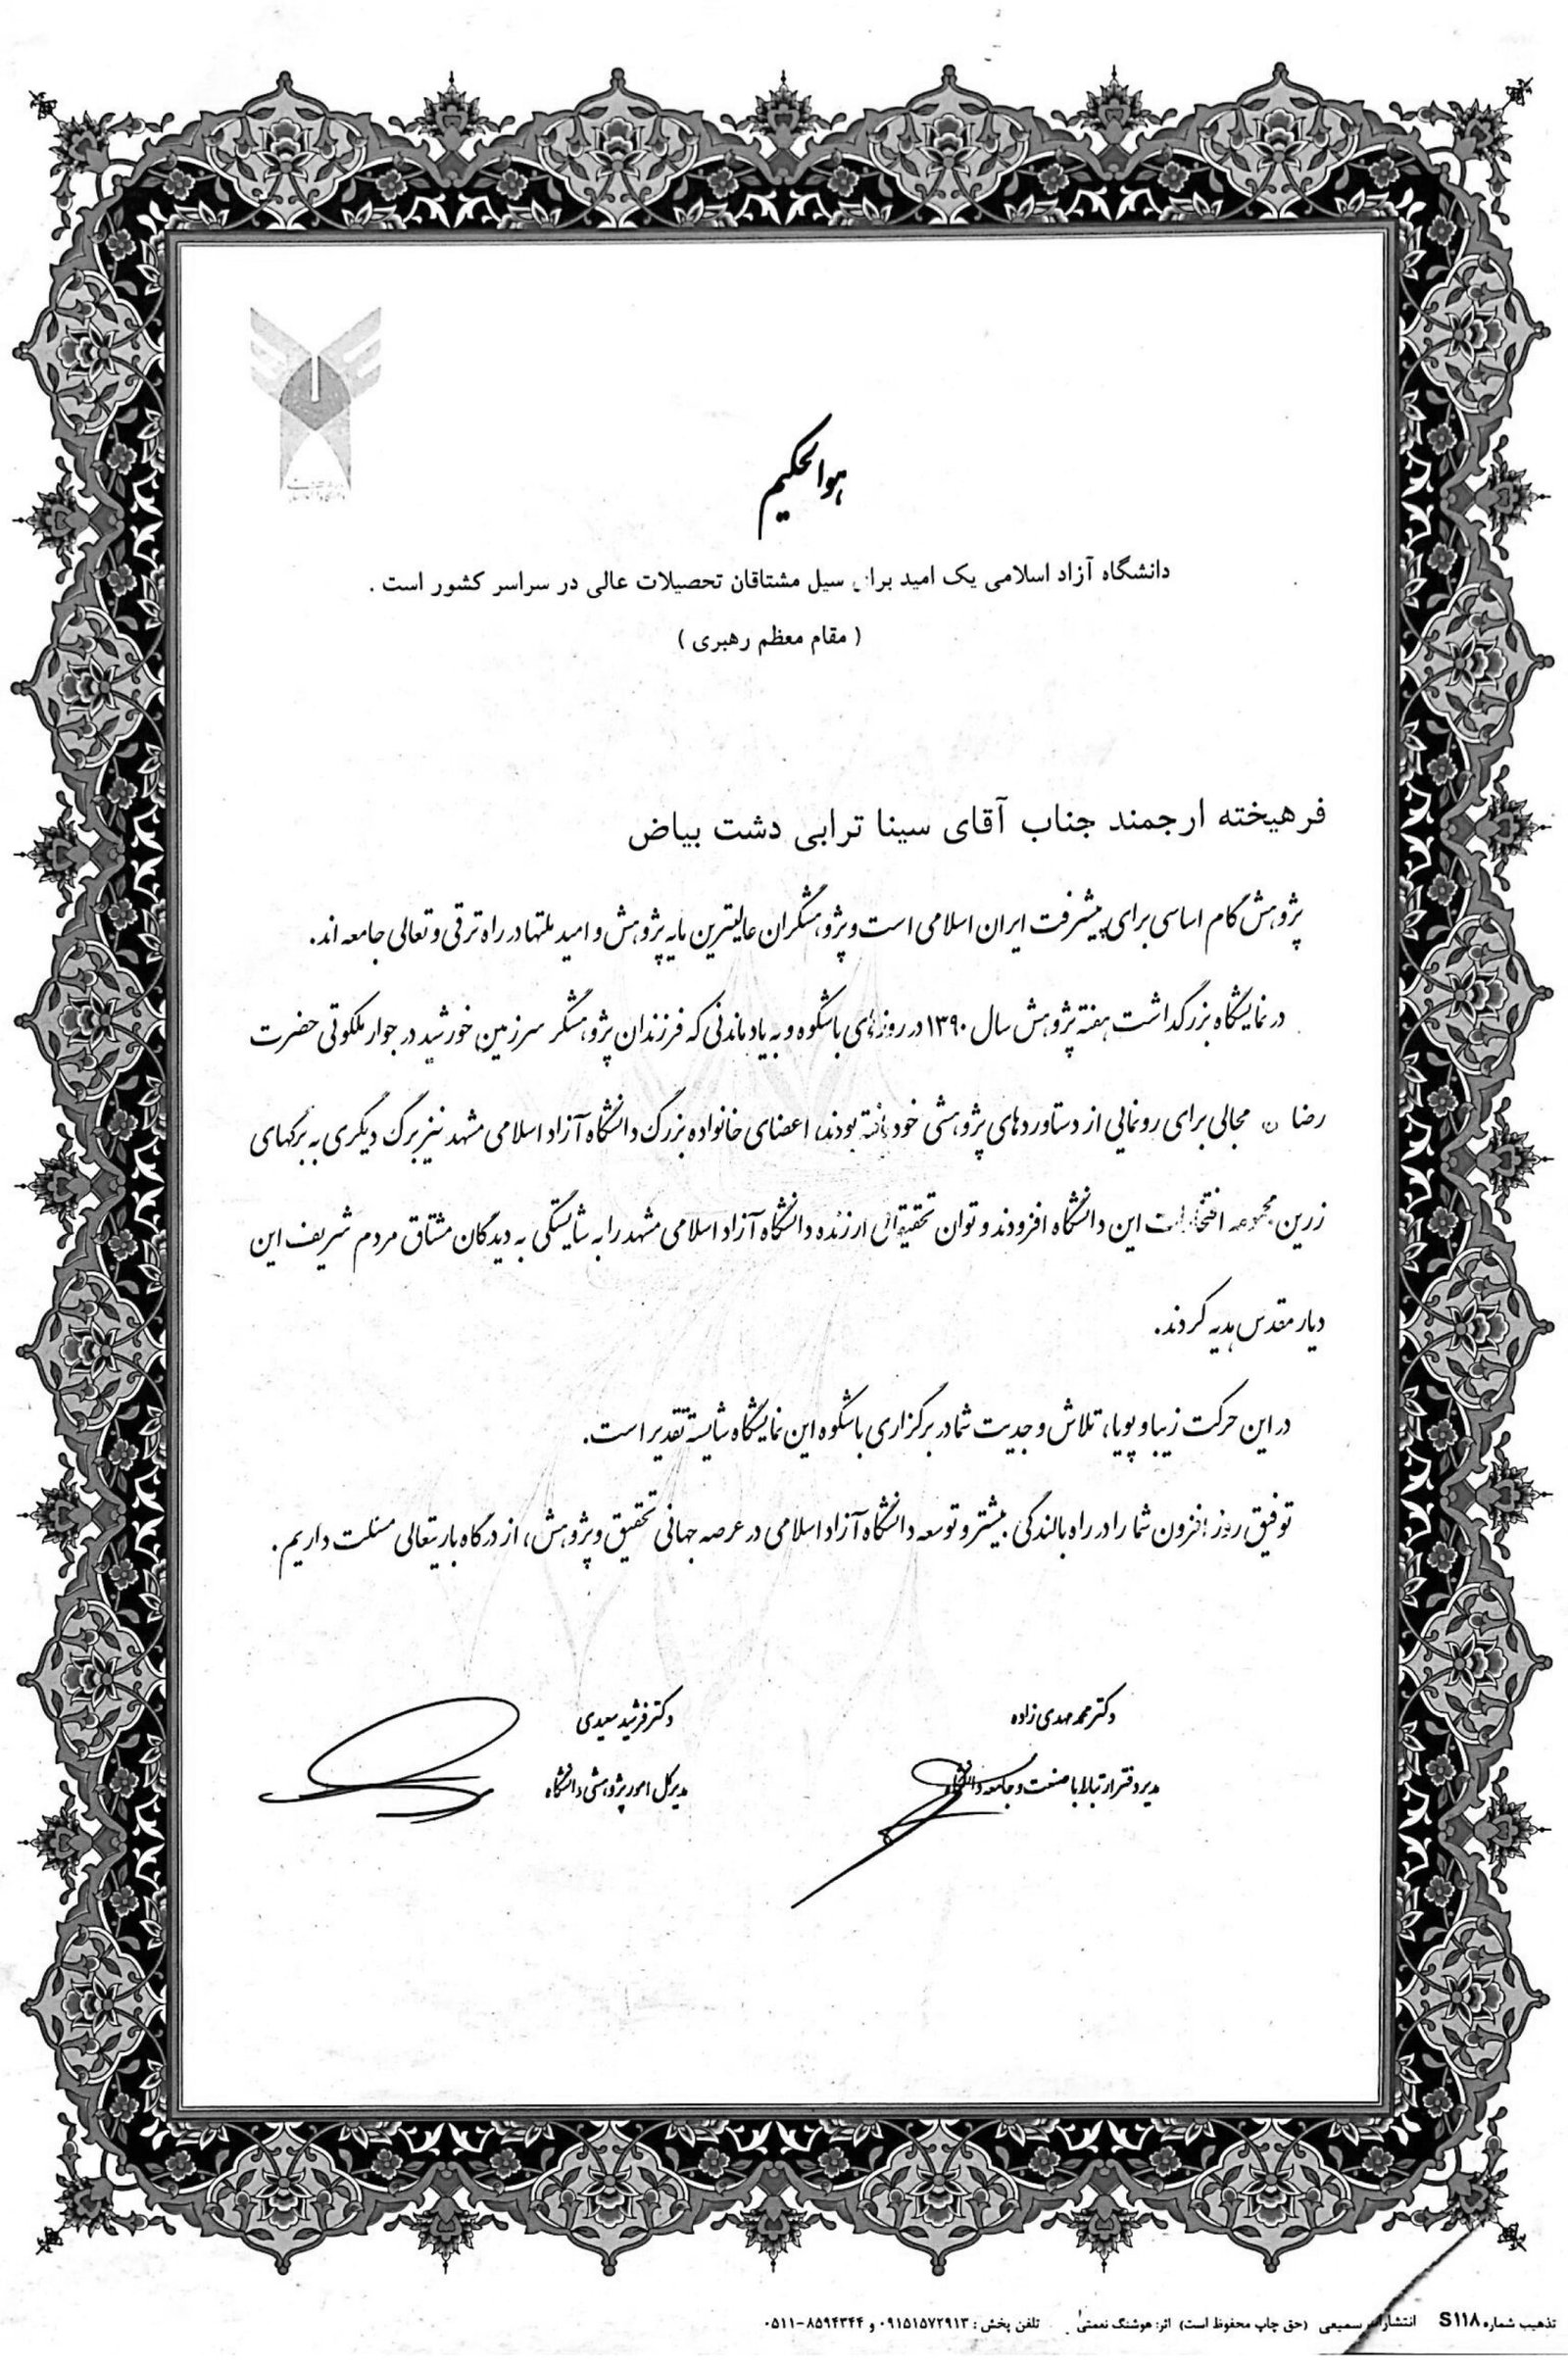 هوالحکیم
دانشگاه آزاد اسلامی یک امید برای سیل مشتاقان تحصیلات عالی در سراسر کشور است .
( مقام معظم رهبری )
فرهیخته ارجمند جناب آقای سینا ترابی دشت بیاض
پژوهش گام اساسی برای پیشرفت ایران اسلامی است و پژوهشگران عالیترین مایه پژوهش و امید ملتها در راه ترقی و تعالی جامعه اند.
در نمایشگاه بزرگداشت هفته پژوهش سال ۱۳۹۰ در روزهای باشکوه و به یاد ماندنی که فرزندان پژوهشگر سرزمین خورشید در جوار ملکوتی حضرت
رضا مجالی برای رونمایی از دستاوردهای پژوهشی خود یافته بودند، اعضای خانواده بزرگ دانشگاه آزاد اسلامی مشهد نیز برگ دیگری به برگهای
زرین مجموعه افتخارات این دانشگاه افزودند و توان تحقیقاتی ارزنده دانشگاه آزاد اسلامی مشهد را به شایستگی به دیدگان مشتاق مردم شریف این
دیار مقدس هدیه کردند.
در این حرکت زیبا و پویا، تلاش و جدیت شما در برگزاری باشکوه این نمایشگاه شایسته تقدیر است.
توفیق روز افزون شما را در راه بالندگی بیشتر و توسعه دانشگاه آزاد اسلامی در عرصه جهانی تحقیق و پژوهش، از درگاه باریتعالی مسئلت داریم.
دکتر محمد مهدی زاده
دکتر فرشید سعیدی
مدیر دفتر ارتباط با صنعت و جامعه دانشگاه
مدیرکل امور پژوهشی دانشگاه
تذهیب شماره S۱۱۸ انتشارات سمیعی (حق چاپ محفوظ است) اثر: هوشنگ نعمتی تلفن پخش : ۰۹۱۵۱۵۷۲۹۱۳ و ۸۵۹۴۳۴۴-۰۵۱۱